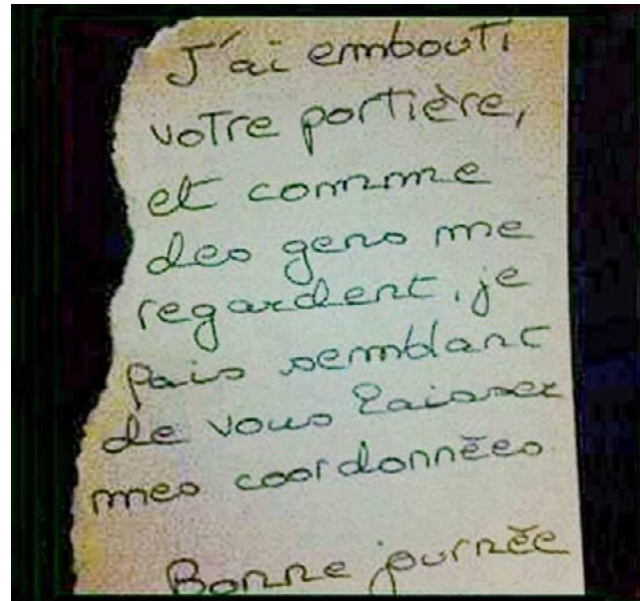 J'ai embouti
votre portière,
et comme
des gens me
regardent, je
fais semblant
de vous laisser
mes coordonnées
Bonne journée